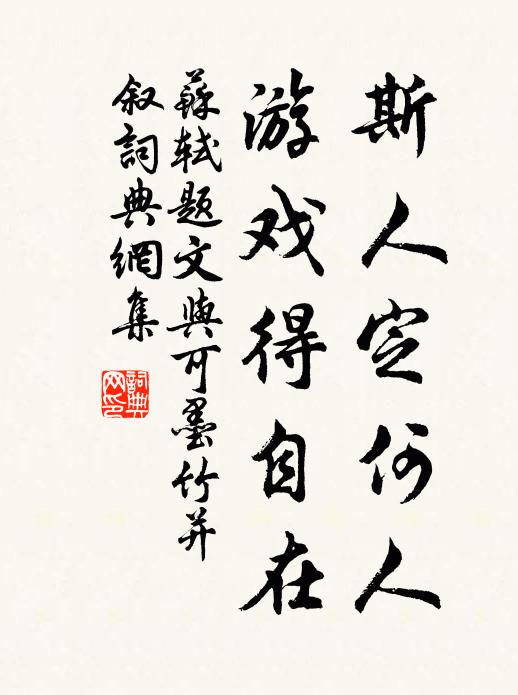 斯人定何人
游戏得自在
蘇軾题文與可墨竹并
叙詞典網集
詞典网印